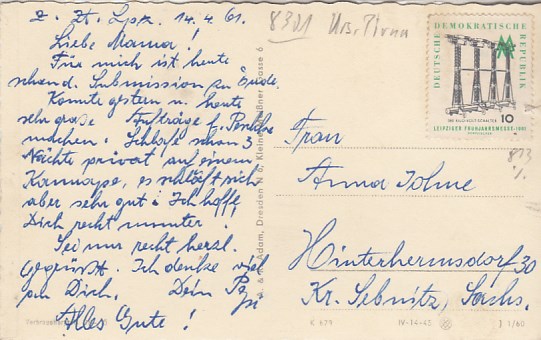 z. Zt. Lpz. 14.4.61.
Liebe Mama!
Für mich ist heute
schond. Submission zu Ende.
Konnte gestern u. heute
sehr große Aufträge f.
machen. Schlafe schon 3
Nächte privat auf einem
Kannape, es schläft sich
aber sehr gut! Ich hoffe,
Dich recht munter!
Sei nur recht herzl.
gegrüßt. Ich denke viel
an Dich. Dein
Alles Gute!
8301 Urspr. Pirna
DEUTSCHE DEMOKRATISCHE REPUBLIK
10
LEIPZIGER FRÜHJAHRSMESSE 1961
Frau
Anna Johne
Hinterhermsdorf 30
Kr. Sebnitz, Sachs.
Adam, Dresden N 6, Kleine Meißner Gasse 6
K 679 IV-14-45 J 1/60